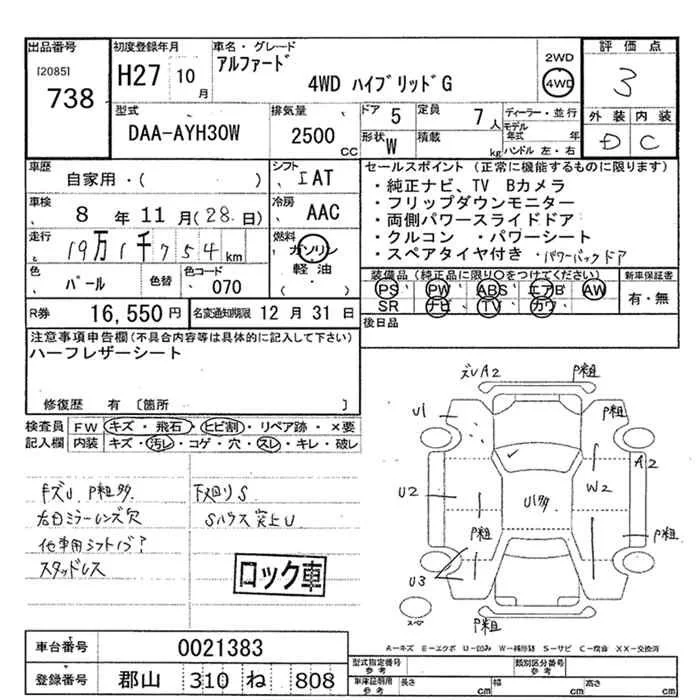 出品番号
[2085]
738
初度登録年月
H27 10月
車名・グレード
アルファード
4WD ハイブリッドG
2WD
4WD
評価点
3
外装 内装
D C
型式
DAA-AYH30W
排気量
2500 CC
ドア 5
定員 7 人
形状 W
積載 kg
ディーラー・並行
モデル年式 年
ハンドル 左・右
車歴
自家用・( )
シフト
I AT
車検
8 年 11 月 (28 日)
冷房
AAC
走行
19万1千754 km
燃料
ガソリン
軽油
( ・ )
色
パール
色替
色コード
070
R券 16,550 円
名変通知期限 12 月 31 日
セールスポイント (正常に機能するものに限ります)
・純正ナビ、TV Bカメラ
・フリップダウンモニター
・両側パワースライドドア
・クルコン ・パワーシート
・スペアタイヤ付き ・パワーバックドア
装備品 (純正品に限り○をつけてください)
PS ・ PW ・ ABS ・ エアB ・ AW
SR ・ ナビ ・ TV ・ カワ ・
新車保証書
有・無
後日品
注意事項申告欄(不具合内容等は具体的に記入して下さい)
ハーフレザーシート
修復歴 有 [箇所 ]
検査員記入欄
FW キズ・飛石・ヒビ割・リペア跡・×要
内装 キズ・汚レ・コゲ・穴・スレ・キレ・破レ
キズU P粗多
右自ミラーレンズ欠
他車用シフトノブ?
スタッドレス
下廻りS
Sハウス突上U
ロック車
ズリA2
P粗
U1
P粗
A2
W2
U2
U多
P粗
P粗
U3
P粗
A-キズ E-エクボ U-凹み W-補修跡 S-サビ C-腐食 XX-交換済
車台番号 0021383
登録番号 郡山 310 ね 808
型式指定番号 参考
類別区分番号 参考
車庫証明用 参考
長さ cm 幅 cm 高さ cm